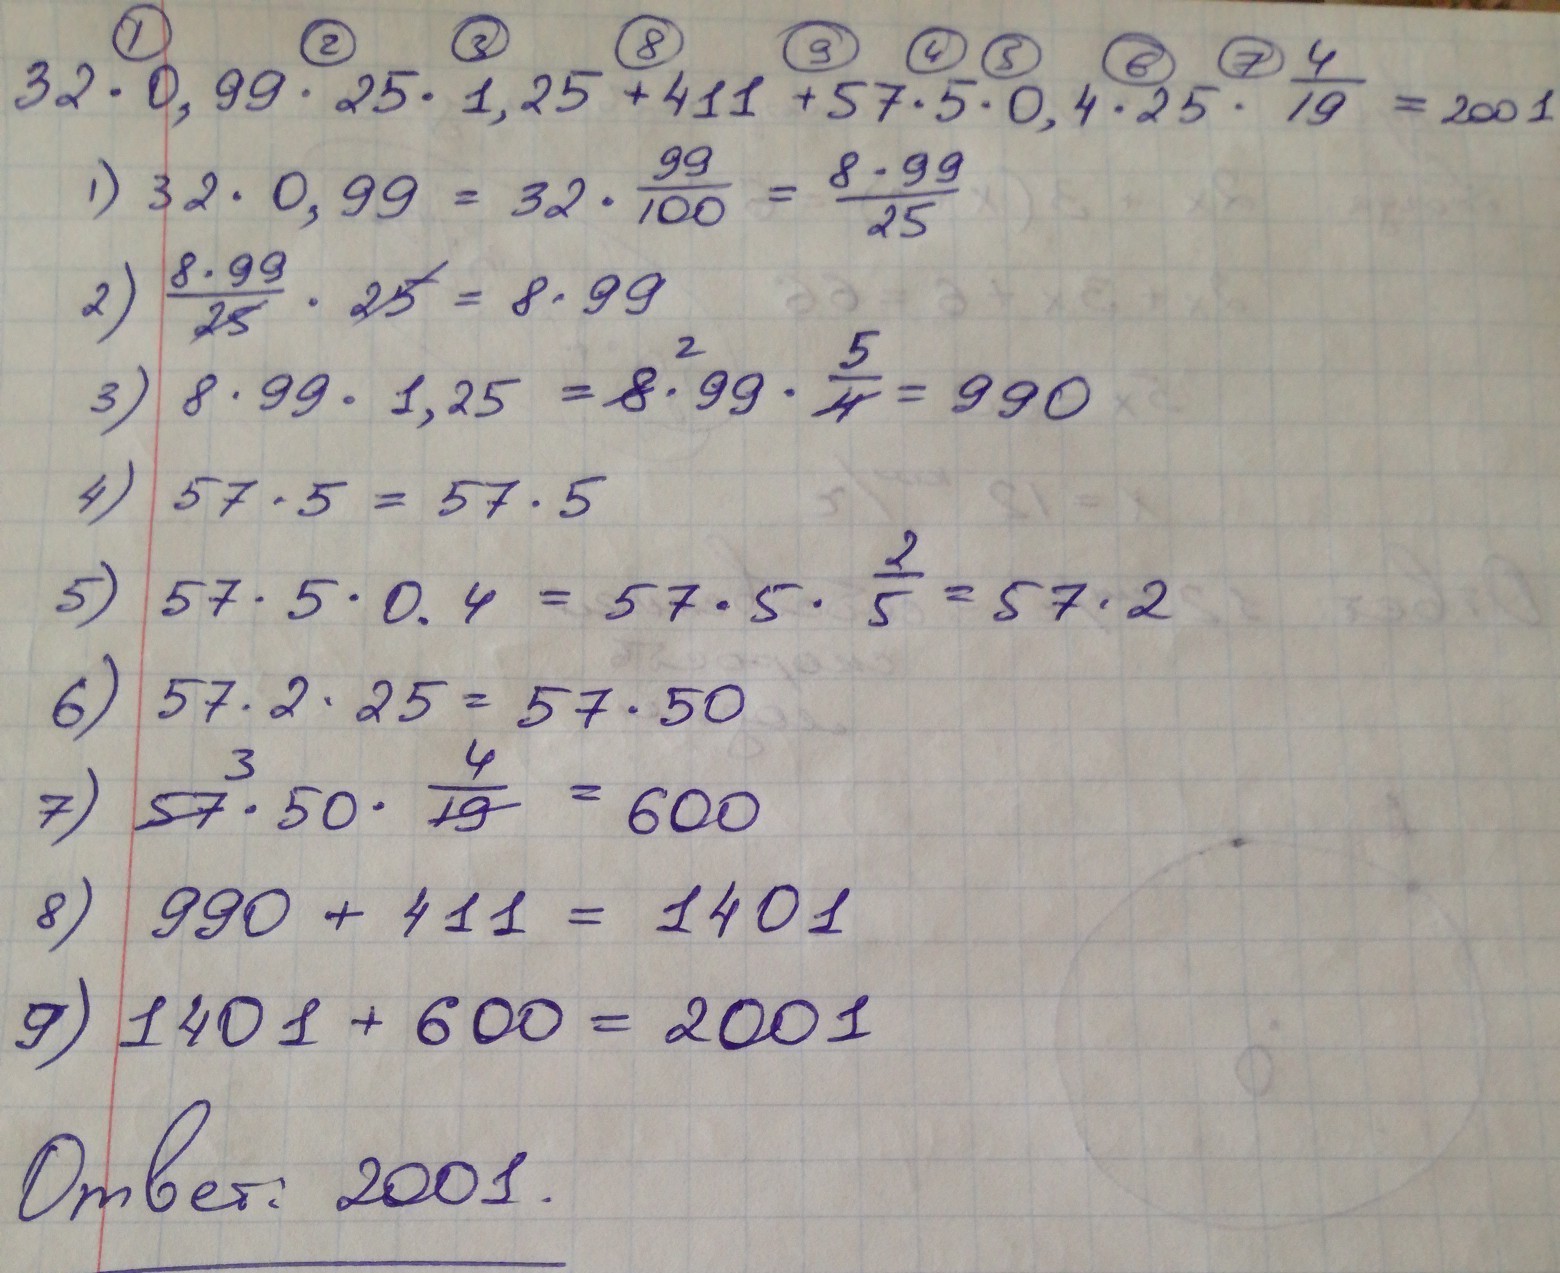 ① ② ③ ⑧ ⑨ ④ ⑤ ⑥ ⑦
32 · 0,99 · 25 · 1,25 + 411 + 57 · 5 · 0,4 · 25 · 4/19 = 2001
1) 32 · 0,99 = 32 · 99/100 = 8 · 99/25
2) 8 · 99/25 · 25 = 8 · 99
3) 8 · 99 · 1,25 = 8² · 99 · 5/4 = 990
4) 57 · 5 = 57 · 5
5) 57 · 5 · 0.4 = 57 · 5 · 2/5 = 57 · 2
6) 57 · 2 · 25 = 57 · 50
7) 57³ · 50 · 4/19 = 600
8) 990 + 411 = 1401
9) 1401 + 600 = 2001
Ответ: 2001.